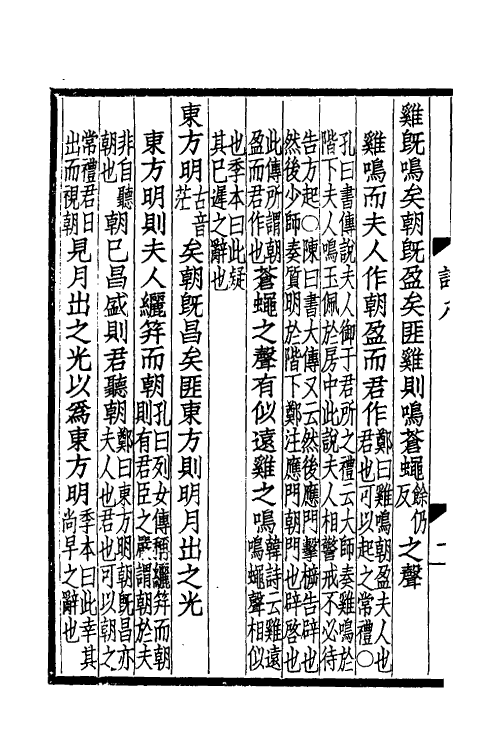 雞既鳴矣朝既盈矣匪雞則鳴蒼蠅餘仍反之聲
雞鳴而夫人作朝盈而君作
鄭曰雞鳴朝盈夫人也
君也可以起之常禮○
孔曰書傳說夫人御于君所之禮云大師奏雞鳴於
階下夫人鳴玉佩於房中此說夫人相警戒不必待
告方起○陳曰書大傳又云然後應門擊櫎告辟也
然後少師奏質明於階下鄭注應門朝門也辟啓也
此傳所謂朝
盈而君作也
蒼蠅之聲有似遠雞之鳴
韓詩云雞遠
鳴蠅聲相似
也季本曰此疑
其已遲之辭也
東方明古音茫矣朝既昌矣匪東方則明月出之光
東方明則夫人纚笄而朝
孔曰列女傳稱纚笄而朝
則有君臣之嚴謂朝於夫
非自聽
朝也
朝已昌盛則君聽朝
鄭曰東方明朝既昌亦
夫人也君也可以朝之
常禮君日
出而視朝
見月出之光以為東方明
季本曰此幸其
尚早之辭也
二